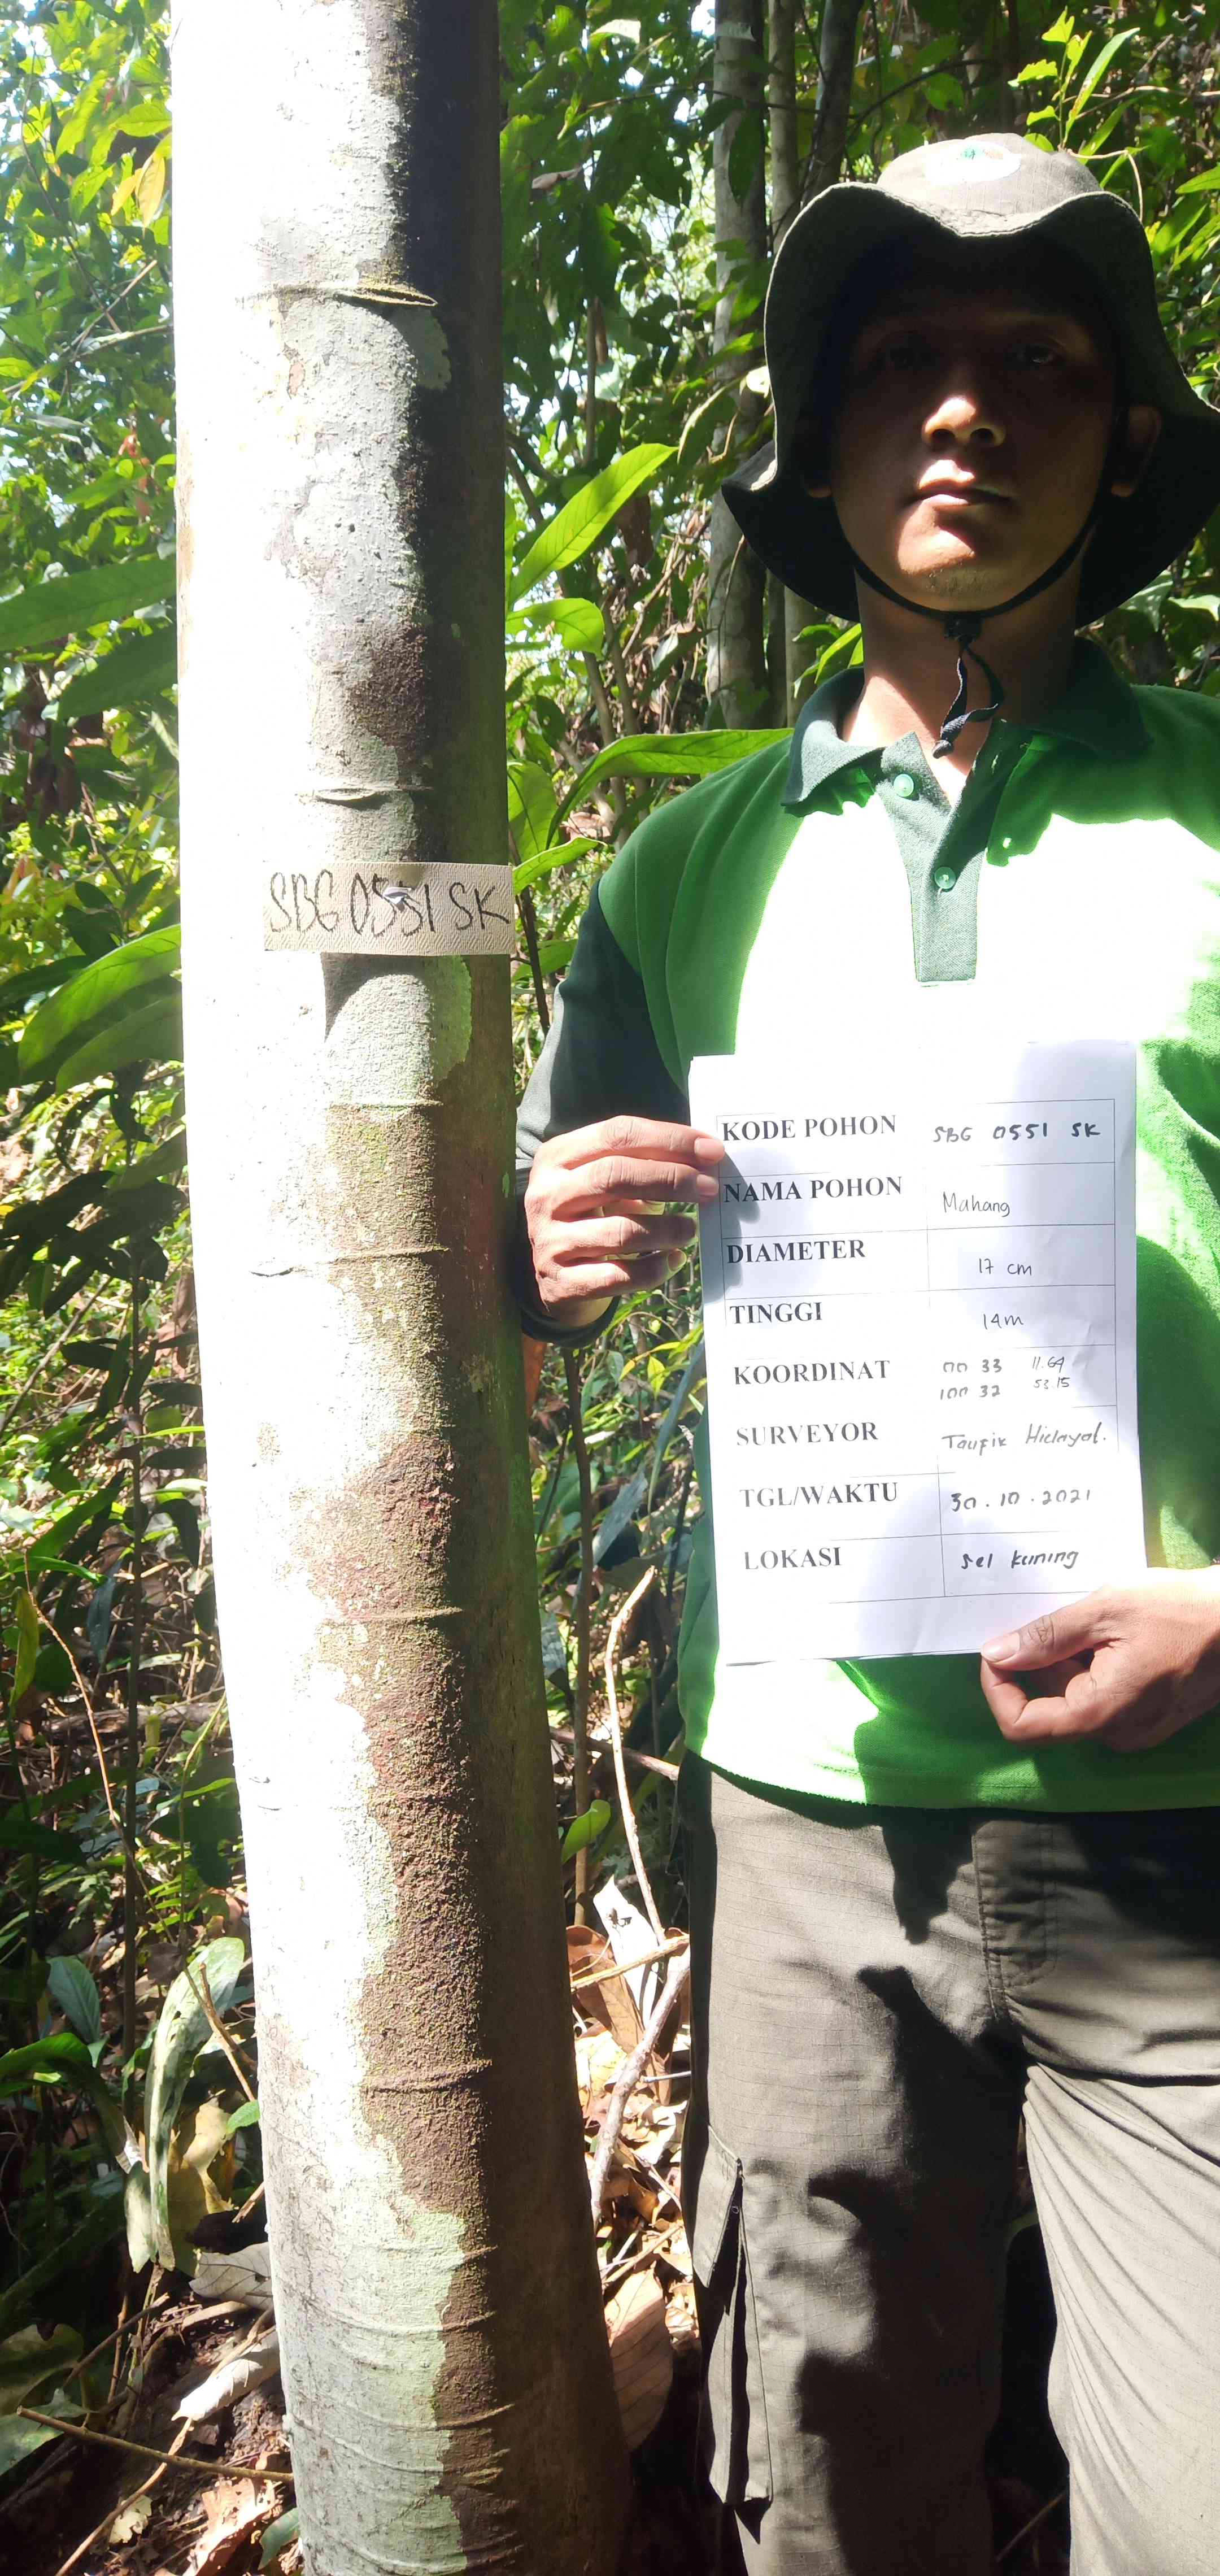 SBG 0551 SK
KODE POHON SBG 0551 SK
NAMA POHON Mahang
DIAMETER 17 cm
TINGGI 14m
KOORDINAT 00 33 11.69
100 32 53.15
SURVEYOR Taufik Hidayat.
TGL/WAKTU 30.10.2021
LOKASI sei kuning